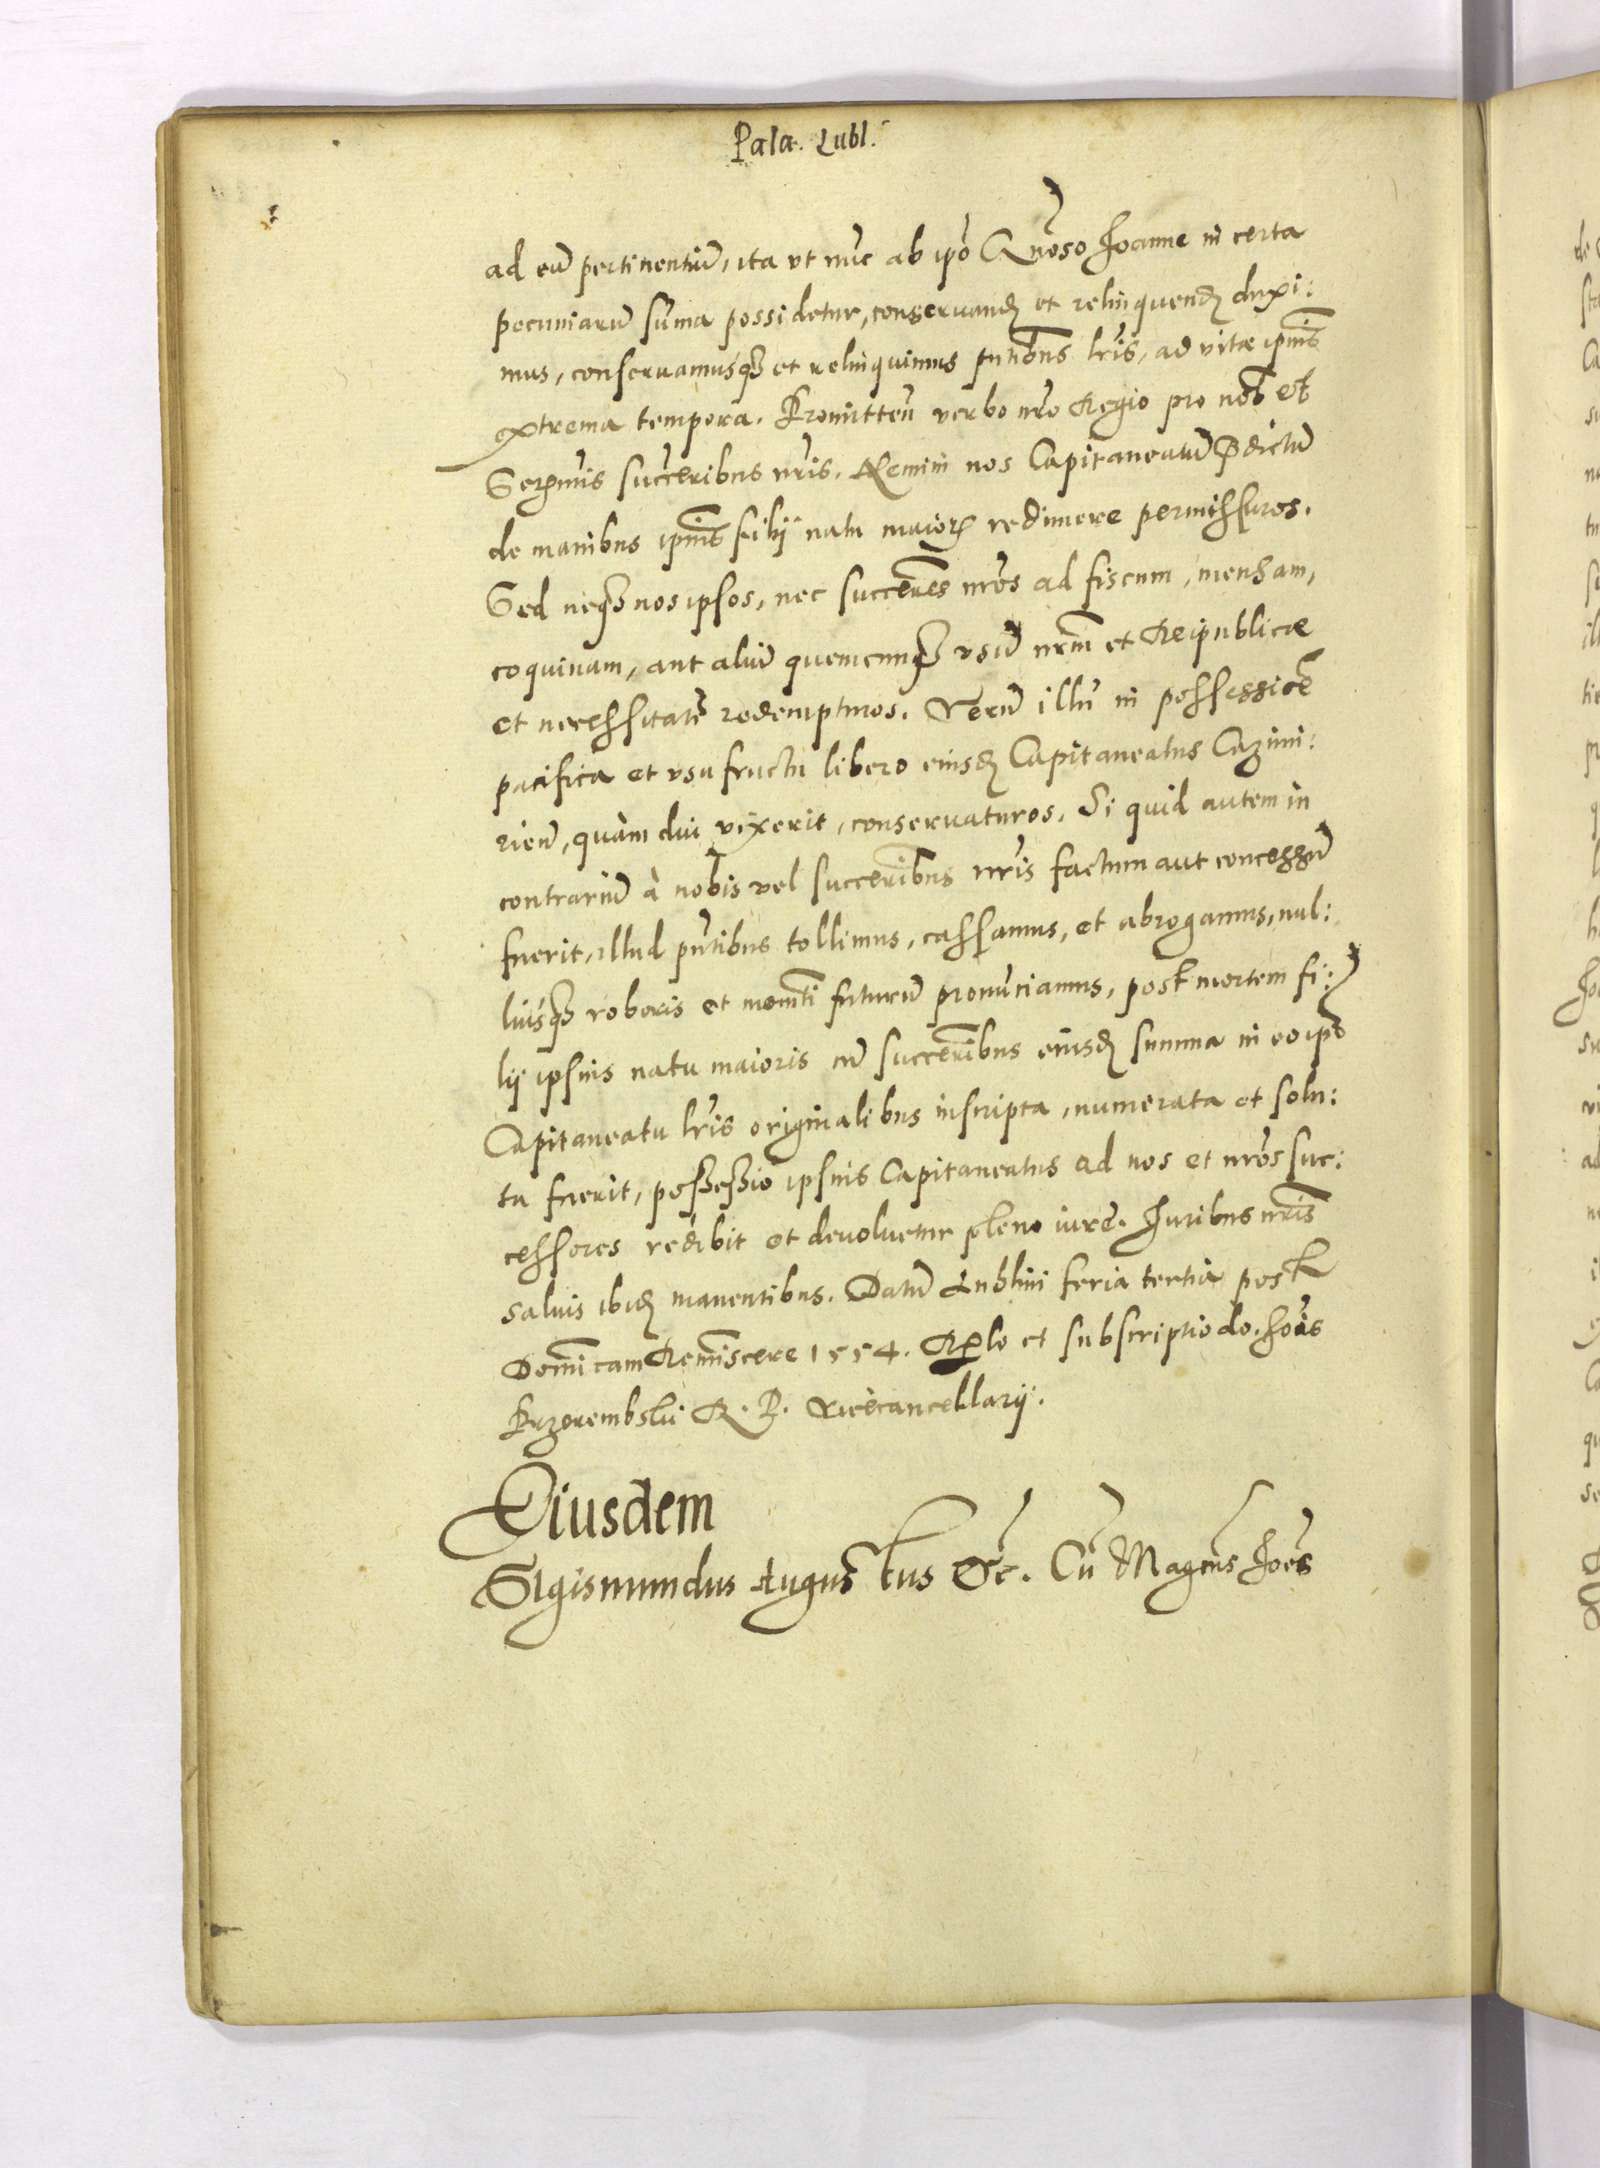 Pala. Lubl.
ad eũ pertinentiũ, ita vt nũc ab ipõ Gñoso Joanne in certa
pecuniarũ sũma possidetur, conseruand et relinquend duxi:
mus, conseruamusqꝫ et relinquimus pñtibus lr̃is, ad vitæ ipsius
extrema tempora. Promitteñ verbo nr̃o Regio pro nob̃ et
Serẽmis succeribus nr̃is. Nemini nos Capitaneatũ p̃dictũ
de manibus ipsius filij natu maior̃ redimere permissuros.
Sed neqꝫ nos ipsos, nec succeres nr̃os ad fiscum, mensam,
coquinam, aut aliũ quemcunqꝫ vsũ nrm̃ et Reipublicæ
et necessitatẽ redempturos. Verũ illũ in possessiõe
pacifica et vsufructu libero eiusd Capitaneatus Cazimi:
rieñ, quàm diu vixerit, conseruaturos. Si quid autem in
contrariũ à nobis vel succeribus nr̃is factum aut concessũ
fuerit, illud pñtibus tollimus, cassamus, et abrogamus, nul:
liusqꝫ roboris et momẽti futurũ pronũciamus, post mortem fi:
lij ipsius natu maioris cũ succeribus eiusd summa in eo ipõ
Capitaneatu lr̃is originalibus inscripta, numerata et solu:
ta fuerit, possessio ipsius Capitaneatus ad nos et nr̃os suc:
cessores redibit et deuoluetur pleno iure. Juribus nr̃is
saluis ibid manentibus. Datũ Lublini feria tertia post
Domĩicam Remĩscere 1554. Rẽlo et subscriptio do. Joãis
Przerembskii R. P. Vicecancellarij.
Eiusdem
Sigismundus Augustus &c. Cũ Magcũs Joẽs